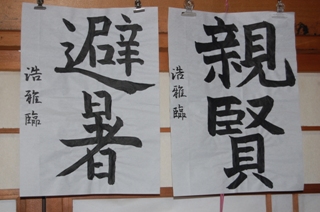 親賢
浩雅臨
避暑
浩雅臨